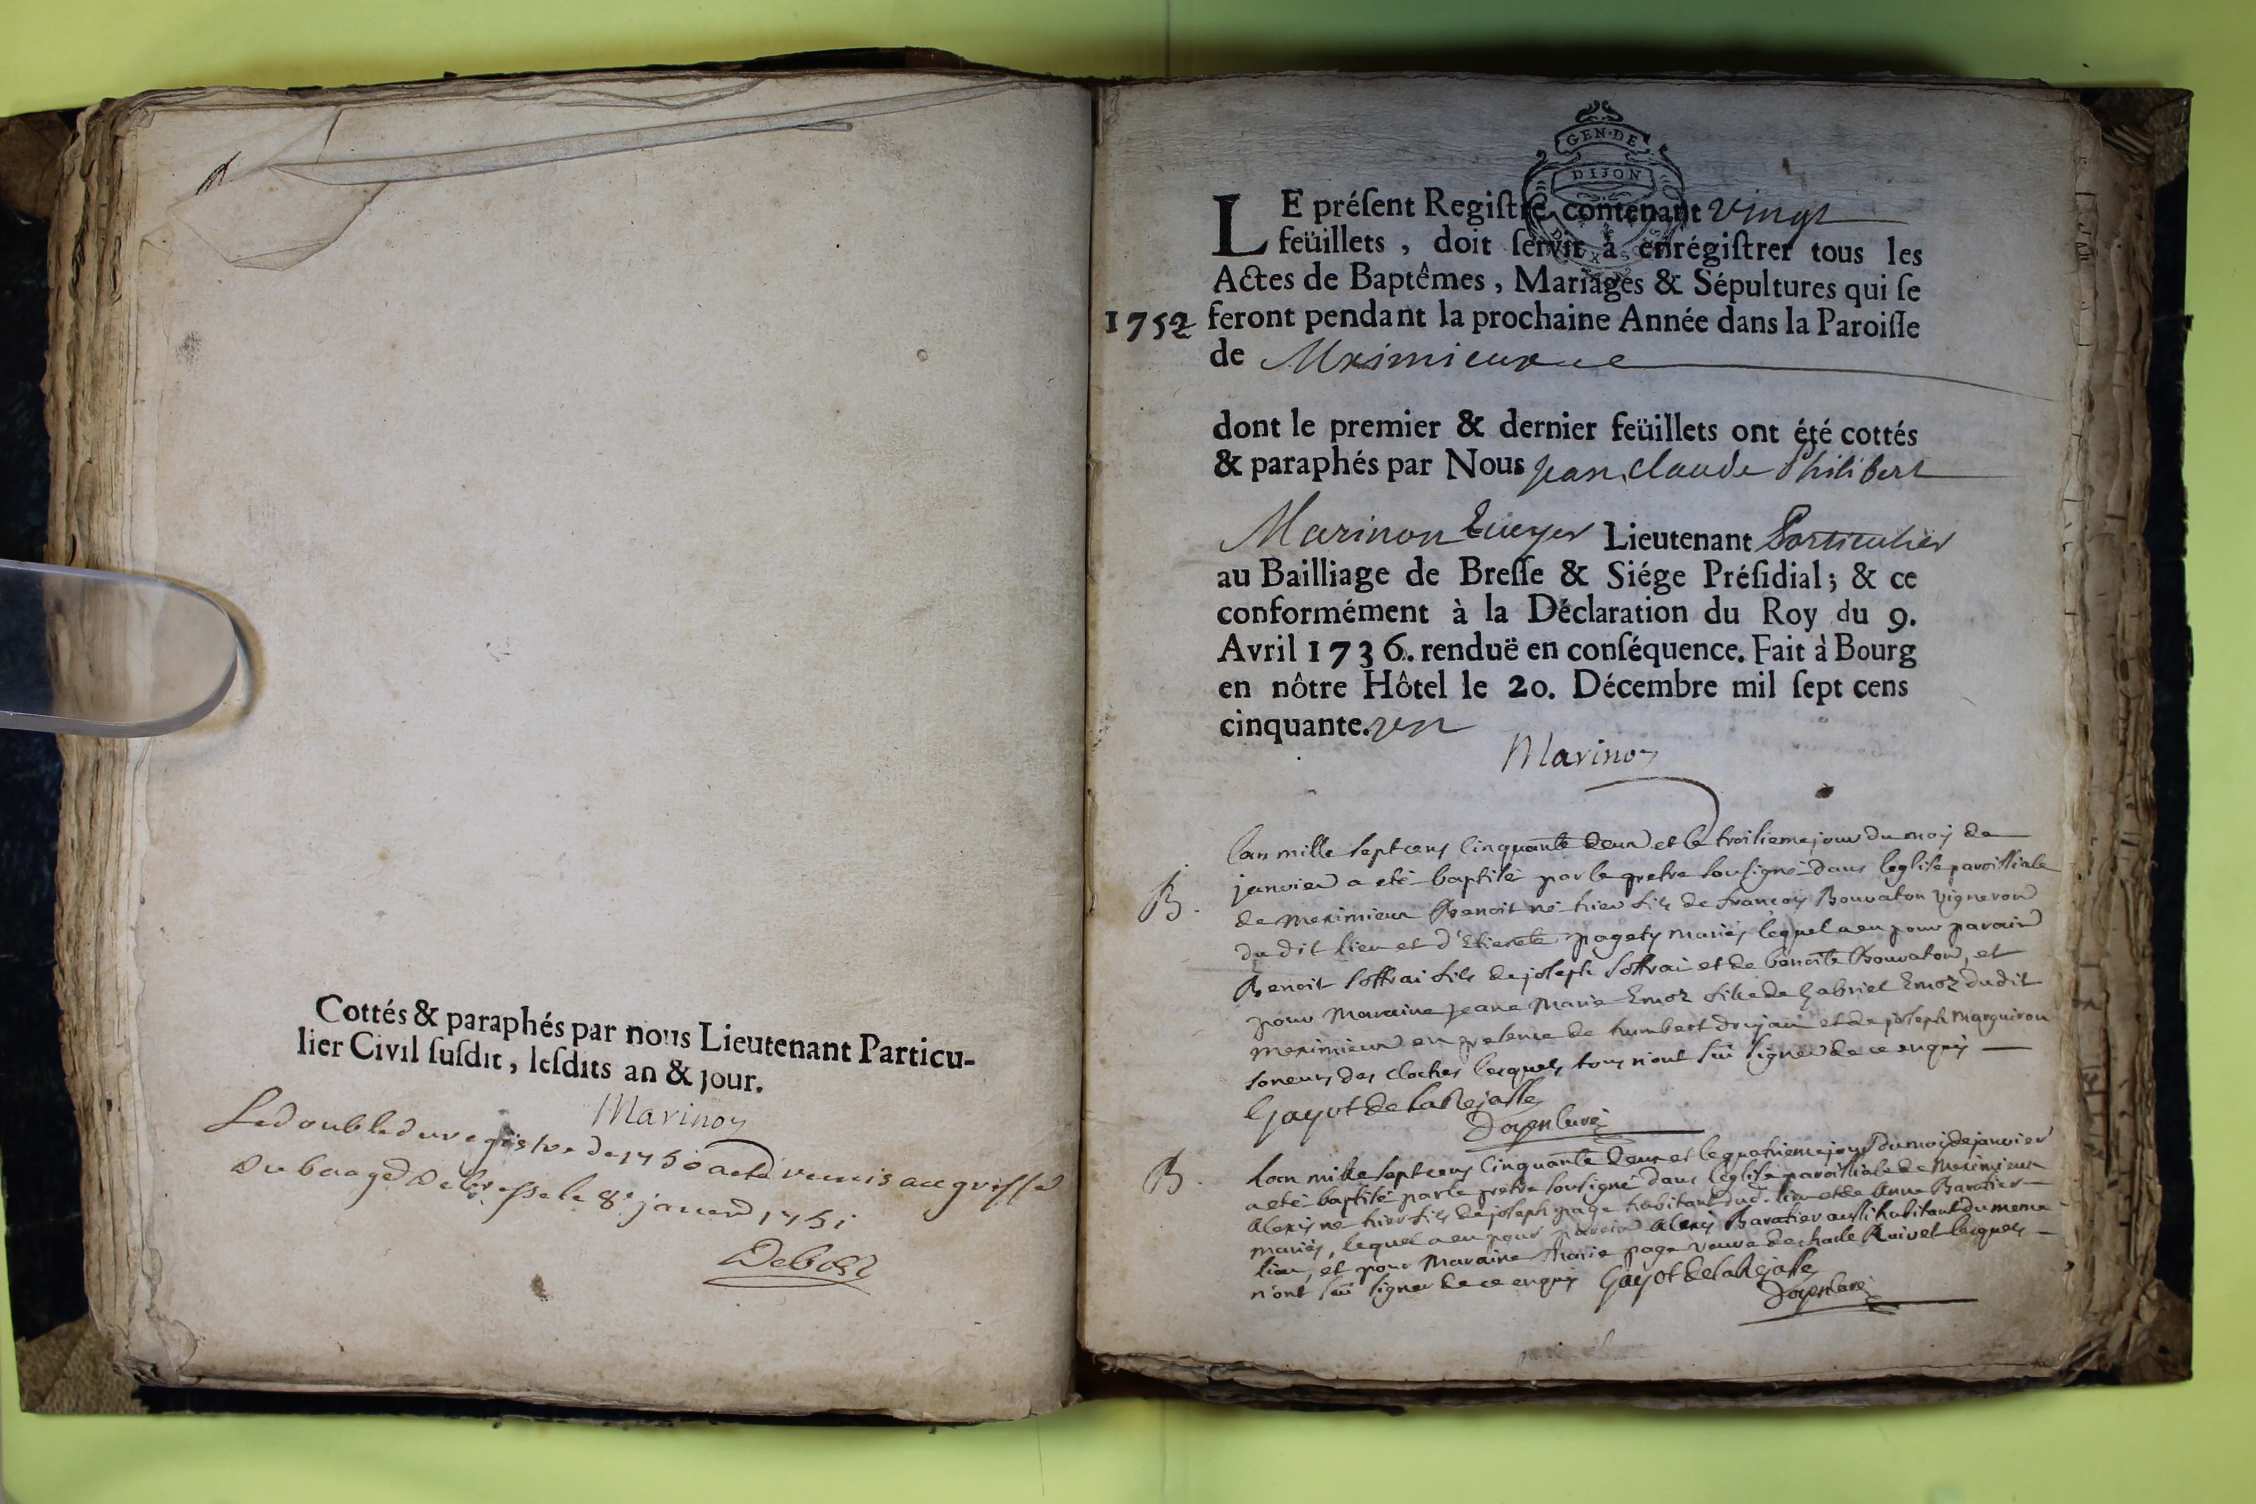 Cottés & paraphés par nous Lieutenant Particu-
lier Civil ſuſdit, leſdits an & jour.
Marinon
Le double du registre de 1750 a eté remis au greffe
du baage de bresse le 8e janver 1751
Debost
GEN·DE
DIJON
LE préſent Regiſtre contenant vingt
feüillets, doit ſervir à enrégiſtrer tous les
Actes de Baptêmes, Mariages & Sépultures qui ſe
1752 feront pendant la prochaine Année dans la Paroiſſe
de Meximieux
dont le premier & dernier feüillets ont été cottés
& paraphés par Nous Jean Claude Philibert
Marinon Ecuyer Lieutenant Particulier
au Bailliage de Breſſe & Siége Préſidial; & ce
conformément à la Déclaration du Roy du 9.
Avril 1736. renduë en conſéquence. Fait à Bourg
en nôtre Hôtel le 20. Décembre mil ſept cens
cinquante. un
Marinon
lan mille sept cens cinquante deux et le troisieme jour du moy de
B. janvier a eté baptisé par le pretre sousigné dans leglise paroissiale
de meximieux Benoit né hier fils de françois Bouvaton vigneron
du dit lieu et d'Etienete pagety mariés lequel a eu pour parain
Benoit Soffrai fils de joseph Soffrai et de benoite Bouvaton, et
pour maraine jeane Marie Emoz fille de gabriel Emoz dudit
meximieux en presence de humbert et de joseph marguiron
soneurs des cloches lesquels tous n'ont sui signer de ce enquis
Gayot de la Rejasse
Doyen curé
B. lan mille sept cens cinquante deux et le quatrieme jour du moi de janvier
a eté baptisé par le pretre sousigné dans leglise paroissiale de meximieux
Alexis né hier fils de joseph page habitant dud. lieu et de Anne Baratier
mariés, lequel a eu pour parain Alexis Baratier aussi habitant du meme
lieu, et pour maraine Marie page veuve de charle Ruivet lesquels
n'ont sui signer de ce enquis Gayot de la Rejasse
Doyen curé